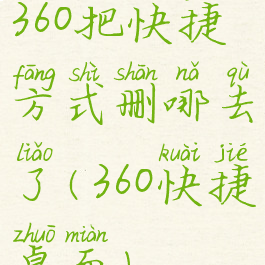 360把快捷
fāng shì shān nǎ qù
方式删哪去
liǎo kuài jié
了(360快捷
zhuō miàn
桌面)